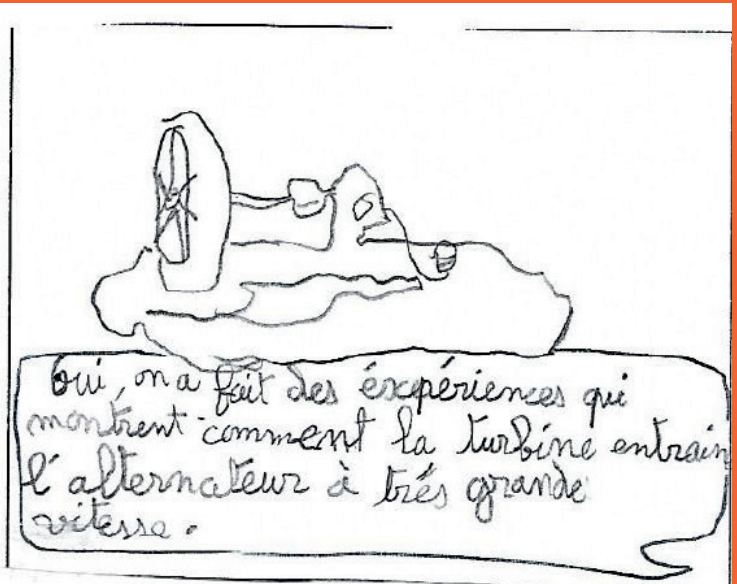 Oui, on a fait des éxpériences qui
montrent comment la turbine entrain
l'alternateur à trés grande
vitesse.